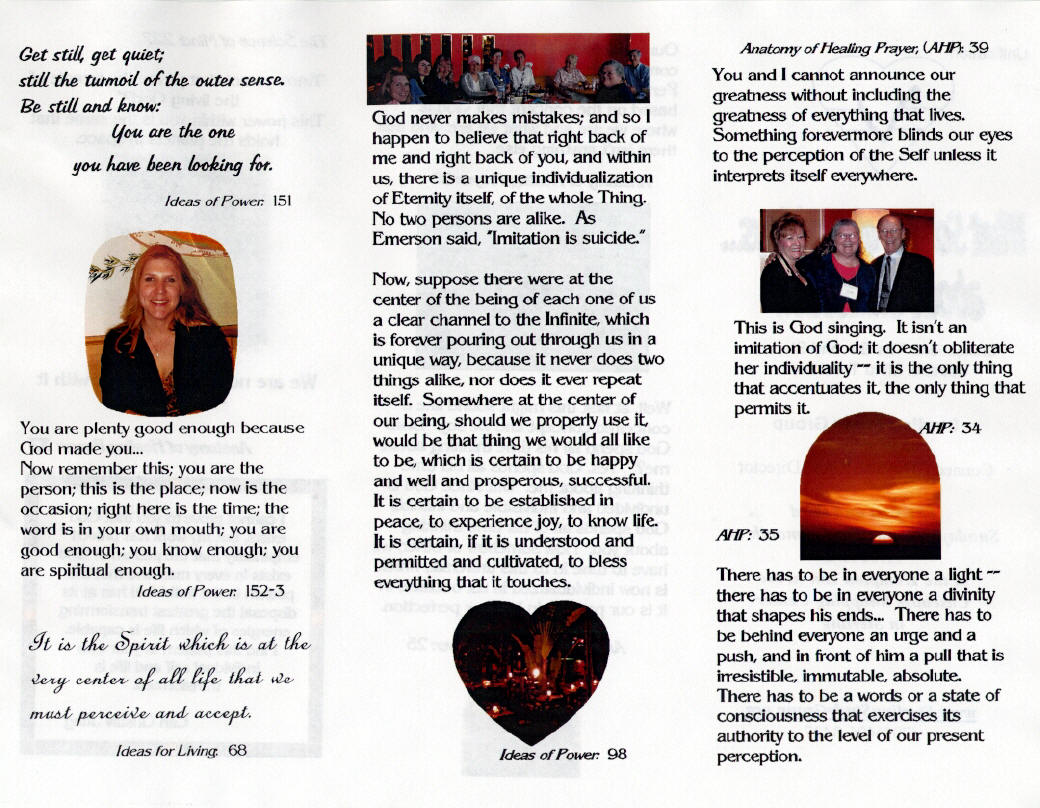 Get still, get quiet;
still the turmoil of the outer sense.
Be still and know:
You are the one
you have been looking for.
Ideas of Power: 151
You are plenty good enough because
God made you...
Now remember this; you are the
person; this is the place; now is the
occasion; right here is the time; the
word is in your own mouth; you are
good enough; you know enough; you
are spiritual enough.
Ideas of Power: 152-3
It is the Spirit which is at the
very center of all life that we
must perceive and accept.
Ideas for Living: 68
God never makes mistakes; and so I
happen to believe that right back of
me and right back of you, and within
us, there is a unique individualization
of Eternity itself, of the whole Thing.
No two persons are alike. As
Emerson said, "Imitation is suicide."
Now, suppose there were at the
center of the being of each one of us
a clear channel to the Infinite, which
is forever pouring out through us in a
unique way, because it never does two
things alike, nor does it ever repeat
itself. Somewhere at the center of
our being, should we properly use it,
would be that thing we would all like
to be, which is certain to be happy
and well and prosperous, successful.
It is certain to be established in
peace, to experience joy, to know life.
It is certain, if it is understood and
permitted and cultivated, to bless
everything that it touches.
Ideas of Power: 98
Anatomy of Healing Prayer, (AHP): 39
You and I cannot announce our
greatness without including the
greatness of everything that lives.
Something forevermore blinds our eyes
to the perception of the Self unless it
interprets itself everywhere.
This is God singing. It isn't an
imitation of God; it doesn't obliterate
her individuality -- it is the only thing
that accentuates it, the only thing that
permits it.
AHP: 34
AHP: 35
There has to be in everyone a light --
there has to be in everyone a divinity
that shapes his ends... There has to
be behind everyone an urge and a
push, and in front of him a pull that is
irresistible, immutable, absolute.
There has to be a words or a state of
consciousness that exercises its
authority to the level of our present
perception.